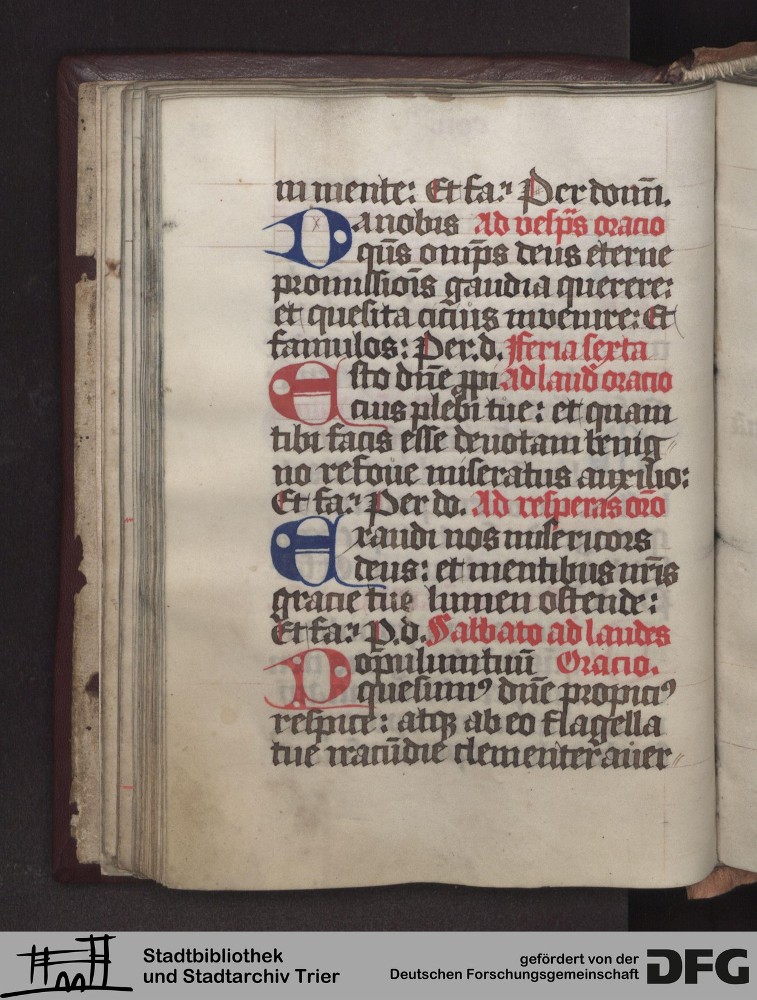 in mente: Et fa.ꝛ Per domī.
Da nobis Ad vesp̄s oracio
qūs omīps deus eterne
promissiōīs gaudia querere:
et quesita cicius inuenire: Et
famulos: Per.d. Feria sexta
Esto dn̄e ꝓpi ad laud̄ oracio
cius plebi tue: et quam
tibi facis esse deuotam benig〃
no refoue miseratus auxilio:
Et fa.ꝛ Per do. Ad vesperas oꝛ̄o
Exaudi nos misericors
deus: et mentibus nr̄is
gracie tue lumen ostende:
Et fa.ꝛ P.d. Sabbato ad laudes
Populum tuū Oracio.
quesumꝰ dn̄e propiciꝰ
respice: atqꝫ ab eo flagella
tue iracūdie clementer auer〃
Stadtbibliothek
und Stadtarchiv Trier
gefördert von der
Deutschen Forschungsgemeinschaft
DFG